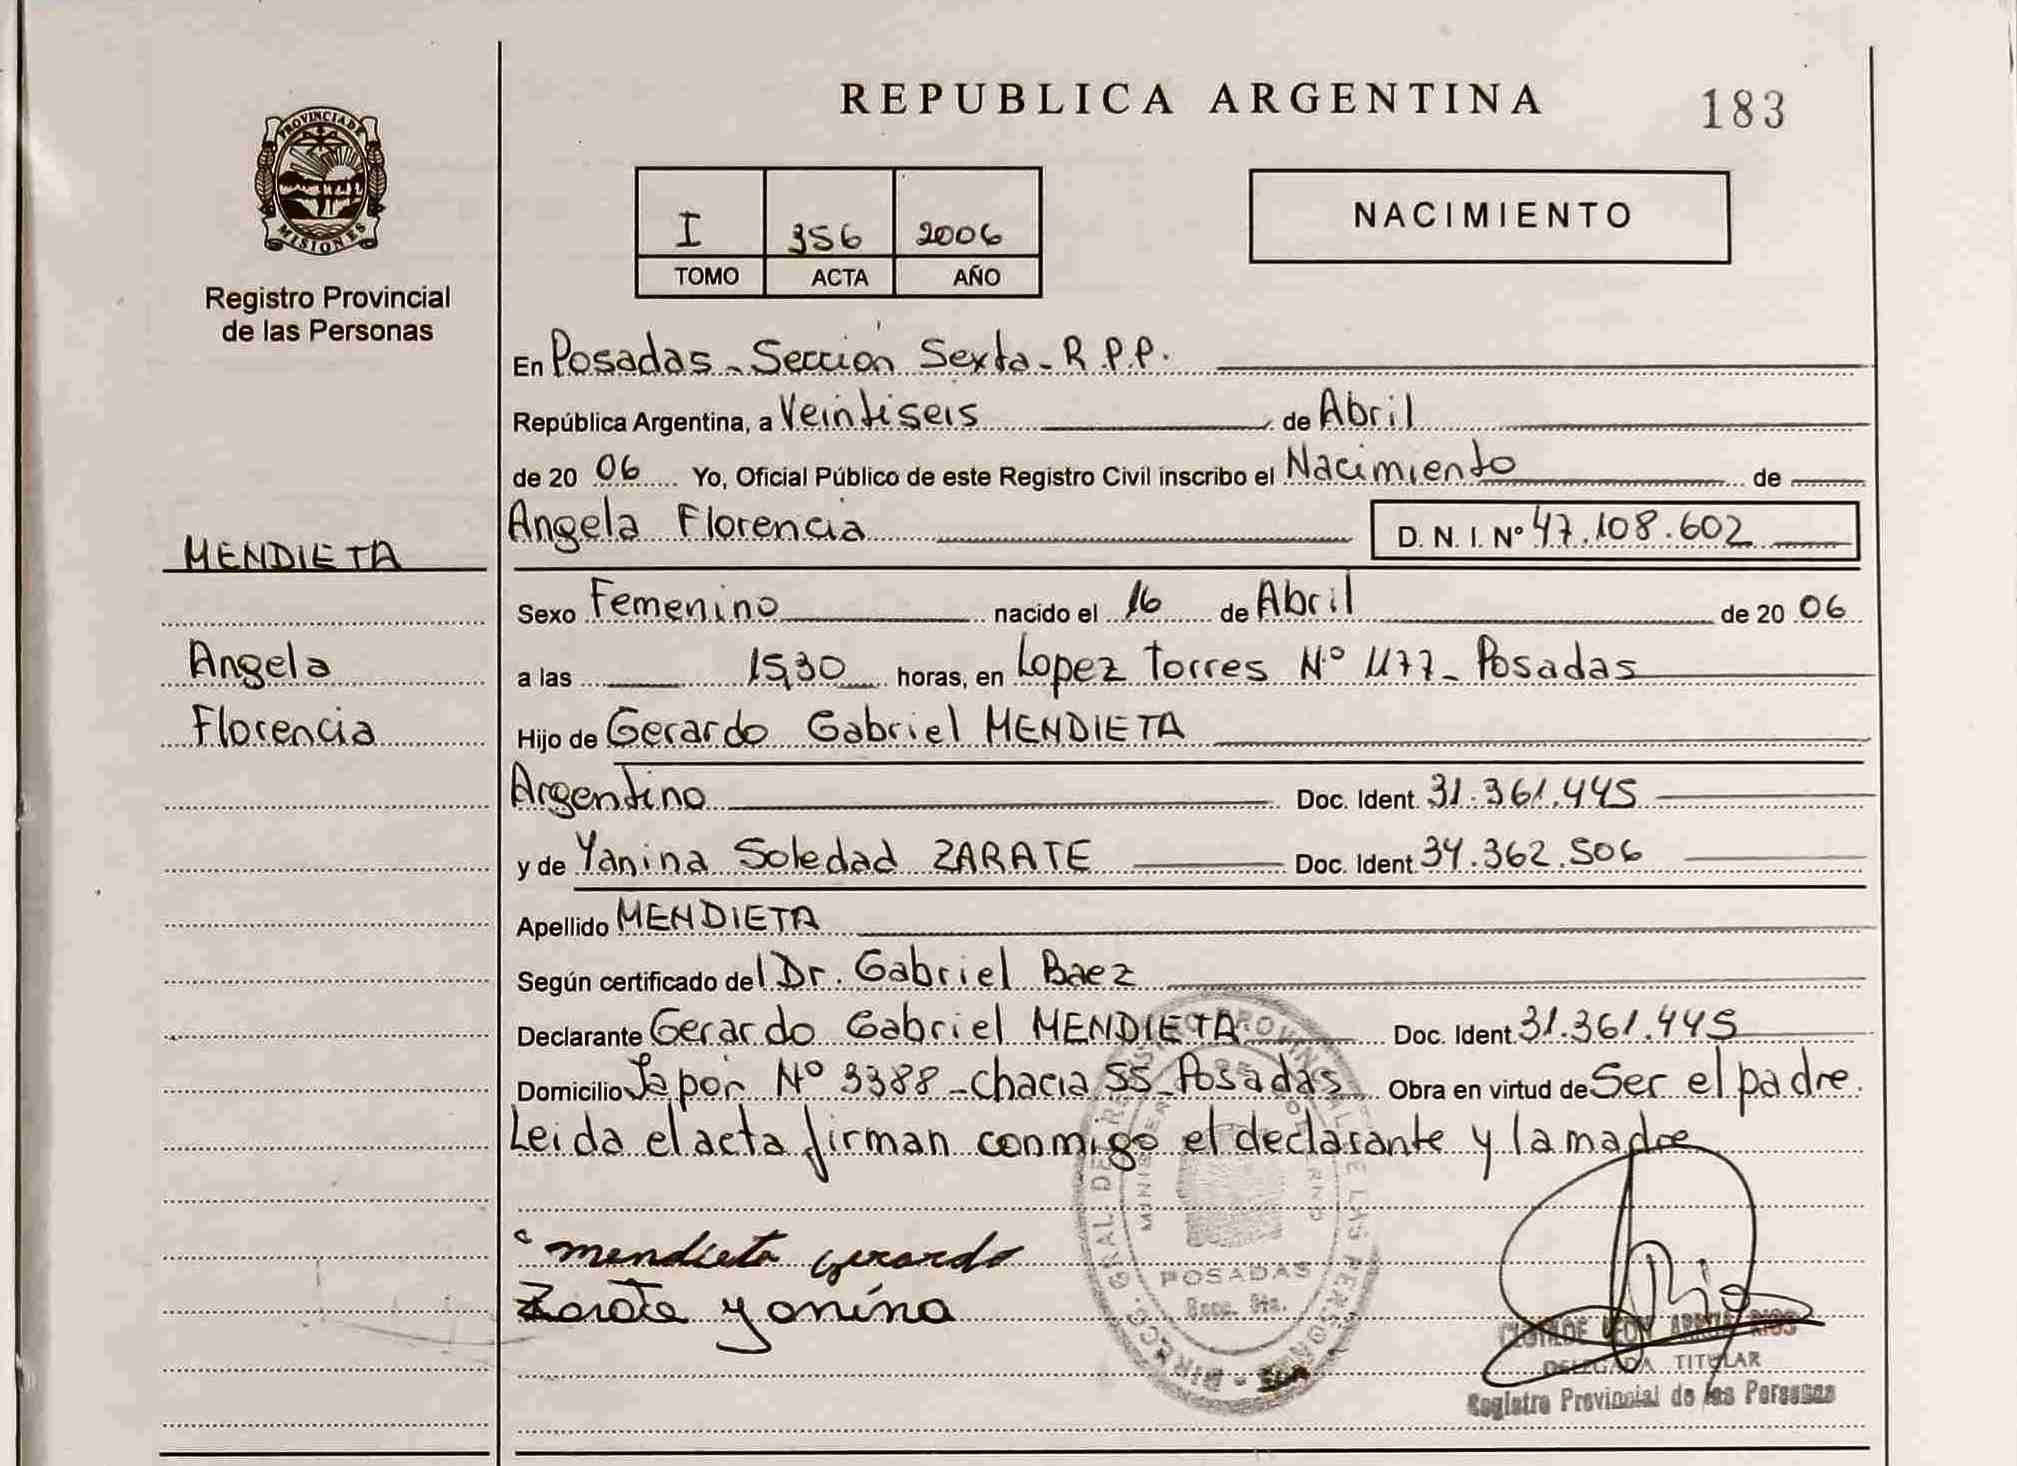 REPUBLICA ARGENTINA
183
PROVINCIA DE
MISIONES
Registro Provincial
de las Personas
I 356 2006
TOMO ACTA AÑO
NACIMIENTO
En Posadas - Sección Sexta - R.P.P.
República Argentina, a Veintiseis de Abril
de 20 06 Yo, Oficial Público de este Registro Civil inscribo el Nacimiento de
Angela Florencia D. N. I. Nº 47.108.602
MENDIETA
Sexo Femenino nacido el 16 de Abril de 20 06
Angela
a las 15,30 horas, en Lopez Torres Nº 1177 - Posadas
Florencia
Hijo de Gerardo Gabriel MENDIETA
Argentino Doc. Ident. 31.361.445
y de Yanina Soledad ZARATE Doc. Ident. 34.362.506
Apellido MENDIETA
Según certificado del Dr. Gabriel Baez
Declarante Gerardo Gabriel MENDIETA Doc. Ident. 31.361.445
Domicilio Nº 3388 - Posadas Obra en virtud de Ser el padre.
Leida el acta firman conmigo el declarante y la madre
mendieta gerardo
Zarate yanina
POSADAS
Secc. 6ta.
DELEGADA TITULAR
Registro Provincial de las Personas